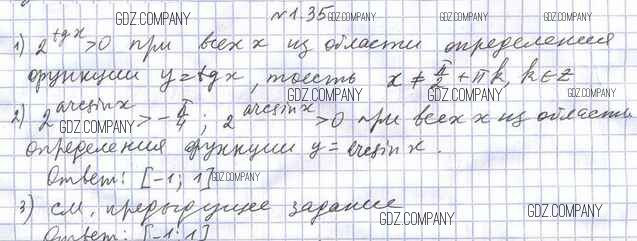 №1.35
1) 2^tgx > 0 при всех x из области определения
функции y = tgx, тоесть x ≠ π/2 + πk, k ∈ z
2) 2^arcsinx > -π/4 ; 2^arcsinx > 0 при всех x из области
определения функции y = arcsin x.
Ответ: [-1; 1]
3) см. предыдущее задание
Ответ: [-1; 1]
GDZ.COMPANY
GDZ.COMPANY
GDZ.COMPANY
GDZ.COMPANY
GDZ.COMPANY
GDZ.COMPANY
GDZ.COMPANY
GDZ.COMPANY
GDZ.COMPANY
GDZ.COMPANY
GDZ.COMPANY
GDZ.COMPANY